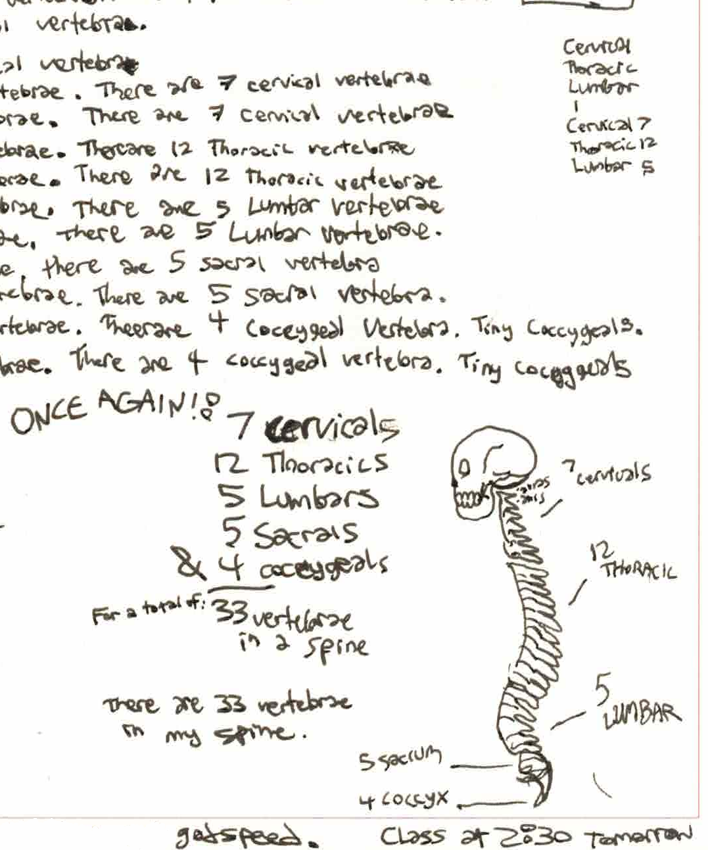 vertebrae.
al vertebrae
tebrae. There are 7 cervical vertebrae
brae. There are 7 Cervical vertebrae
ebrae. Therare 12 Thoracic vertebrae
brae. There are 12 Thoracic vertebrae
brae. There are 5 Lumbar vertebrae
ae, there are 5 Lumbar vertebrae.
e, there are 5 sacral vertebra
rebrae. There are 5 sacral vertebra.
rtebrae. Theerare 4 coccygeal Vertebra. Tiny Coccygeals.
brae. There are 4 coccygeal vertebra. Tiny coccygeals
Cervical
Thoracic
Lumbar
1
Cervical 7
Thoracic 12
Lumbar 5
ONCE AGAIN!!
7 cervicals
12 Thoracics
5 Lumbars
5 Sacrals
& 4 coccygeals
For a total of: 33 vertebrae
in a spine
there are 33 vertebrae
in my spine.
atlas
axis
7 cervicals
12
THORACIC
5
LUMBAR
5 sacrum
4 coccyx
godspeed. Class at 2:30 tomorrow